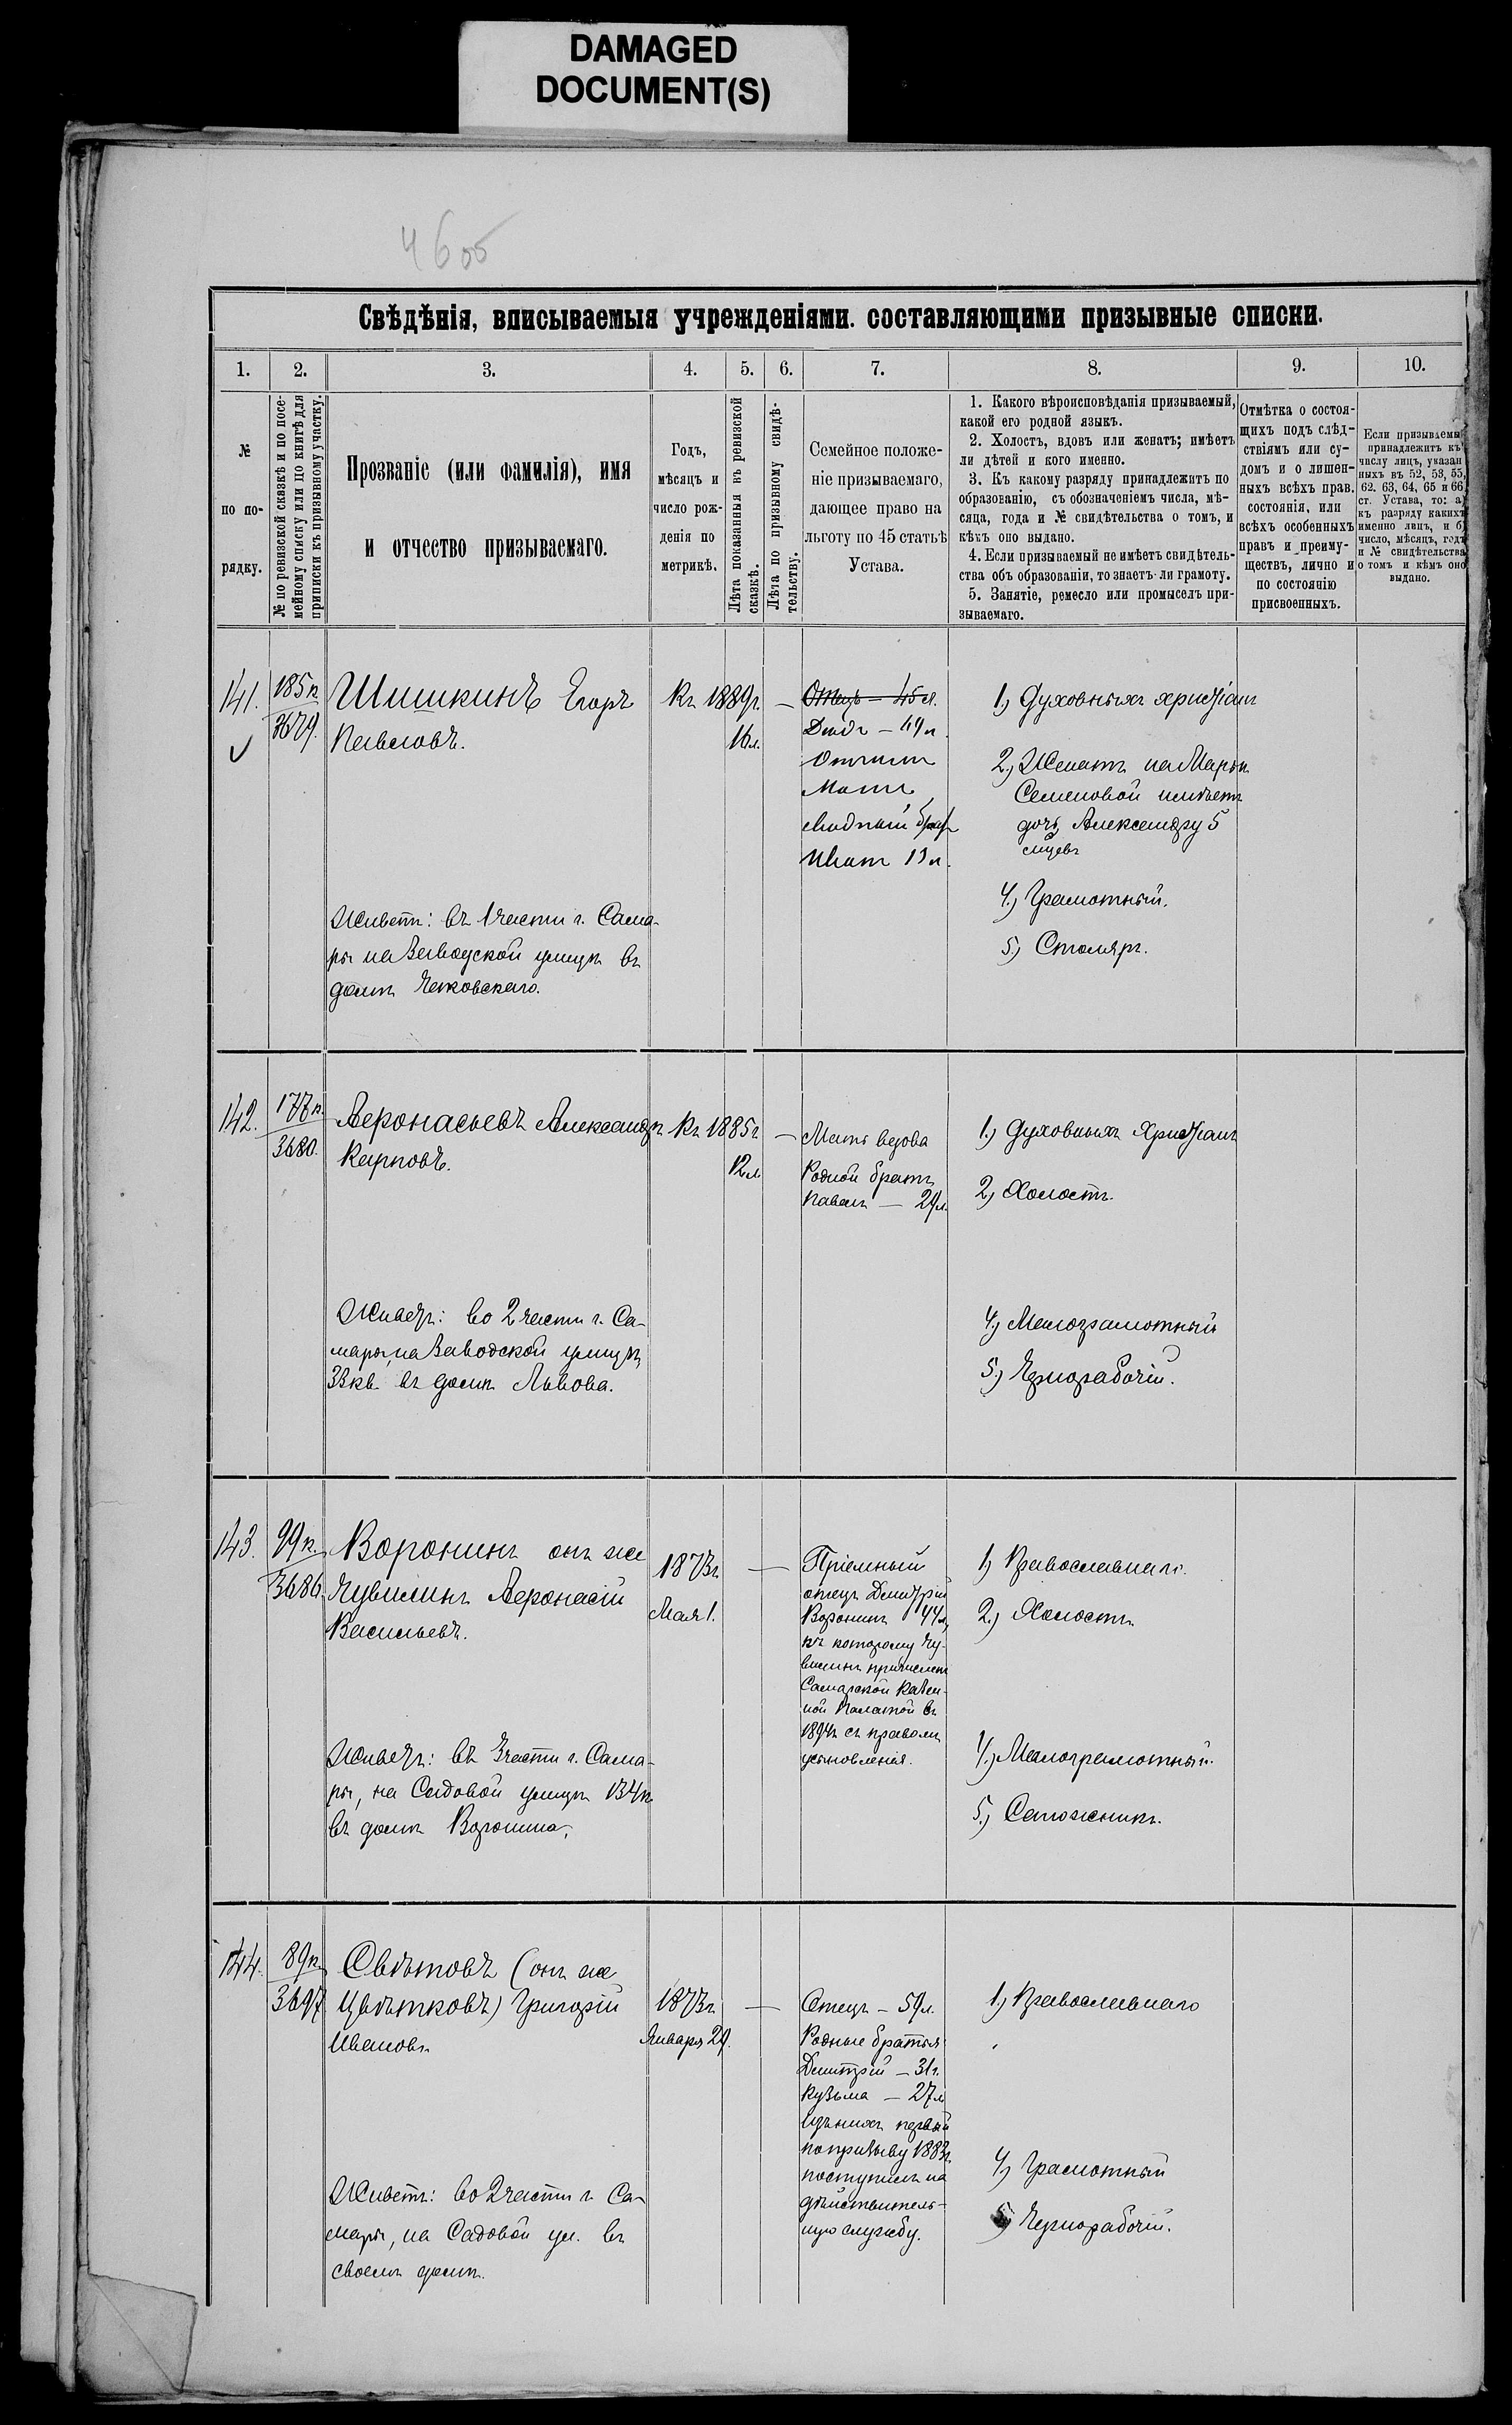 DAMAGED
DOCUMENT(S)
Свѣдѣнія, вписываемыя учрежденіями. составляющими призывные списки.
1.
2.
3.
4.
5.
6.
7.
8.
9.
10.
№
по по-
рядку.
№ по ревизской сказкѣ и по посе-
мейному списку или по книгѣ для
приписки къ призывному участку.
Прозваніе (или фамилія), имя
и отчество призываемаго.
Годъ,
мѣсяцъ и
число рож-
денія по
метрикѣ.
Лѣта показанныя въ ревизской
сказкѣ.
Лѣта по призывному свидѣ-
тельству.
Семейное положе-
ніе призываемаго,
дающее право на
льготу по 45 статьѣ
Устава.
1. Какого вѣроисповѣданія призываемый,
какой его родной языкъ.
2. Холостъ, вдовъ или женатъ; имѣетъ
ли дѣтей и кого именно.
3. Къ какому разряду принадлежитъ по
образованію, съ обозначеніемъ числа, мѣ-
сяца, года и № свидѣтельства о томъ, и
кѣмъ оно выдано.
4. Если призываемый не имѣетъ свидѣтель-
ства объ образованіи, то знаетъ-ли грамоту.
5. Занятіе, ремесло или промыселъ при-
зываемаго.
Отмѣтка о состоя-
щихъ подъ слѣд-
ствіямъ или су-
домъ и о лишен-
ныхъ всѣхъ прав.
состоянія, или
всѣхъ особенныхъ
правъ и преиму-
ществъ, лично и
по состоянію
присвоенныхъ.
Если призываемый
принадлежитъ къ
числу лицъ, указан
ныхъ въ 52, 53, 55,
62. 63, 64, 65 и 66
ст. Устава, то: а)
къ разряду какихъ
именно лицъ, и б)
число, мѣсяцъ, годъ
и № свидѣтельства
о томъ и кѣмъ оно
выдано.
141.
185п.
3679.
Шишкинъ Егоръ
Павловъ.
Къ 1889г.
16л.
—
Отецъ — 45л.
Дядя — 49л.
Отчимъ
Мать
сводный братъ
Иванъ 13л.
1, Духовныхъ христіанъ
2, Женатъ на Марьѣ
Семеновой имѣетъ
дочь Александру 5
мѣсяцевъ
4, Грамотный.
5, Столяръ.
Живетъ: въ 1 части г. Сама-
ры на Заводской улицѣ въ
домѣ
142.
177п.
3680.
Аѳонасьевъ Александръ
Карповъ.
Къ 1885г.
12л.
—
Мать вдова
Родной братъ
Павелъ — 29л.
1, Духовныхъ Христіанъ
2, Холостъ.
4, Малограмотный
5, Чернорабочій.
Живетъ: во 2 части г. Са-
мары, на Заводской улицѣ
33 кв. въ домѣ Львова.
143.
99п.
3686.
Воронинъ онъ же
Чувилинъ Аѳонасій
Васильевъ.
1873г.
Мая 1.
—
Пріемный
отецъ Дмитрій
Воронинъ 44л,
къ которому Чу-
вилинъ причисленъ
Самарской Казен-
ной Палатой въ
1894г. съ правомъ
усыновленія.
1, Православнаго.
2, Холостъ.
4, Малограмотный.
5, Сапожникъ.
Живетъ: въ 3 части г. Сама-
ры, на Садовой улицѣ 134 кв
въ домѣ Воронина.
144.
89п.
3697
Свѣтовъ (онъ же
Цвѣтковъ) Григорій
Ивановъ
1873г.
Января 29.
—
Отецъ — 59л.
Родные братья:
Дмитрій — 31г.
Кузьма — 27л.
изъ нихъ первый
по призыву 1883г.
поступилъ на
дѣйствитель-
ную службу.
1, Православнаго
4, Грамотный
5, Чернорабочій.
Живетъ: во 2 части г. Са-
мары, на Садовой ул. въ
своемъ домѣ.